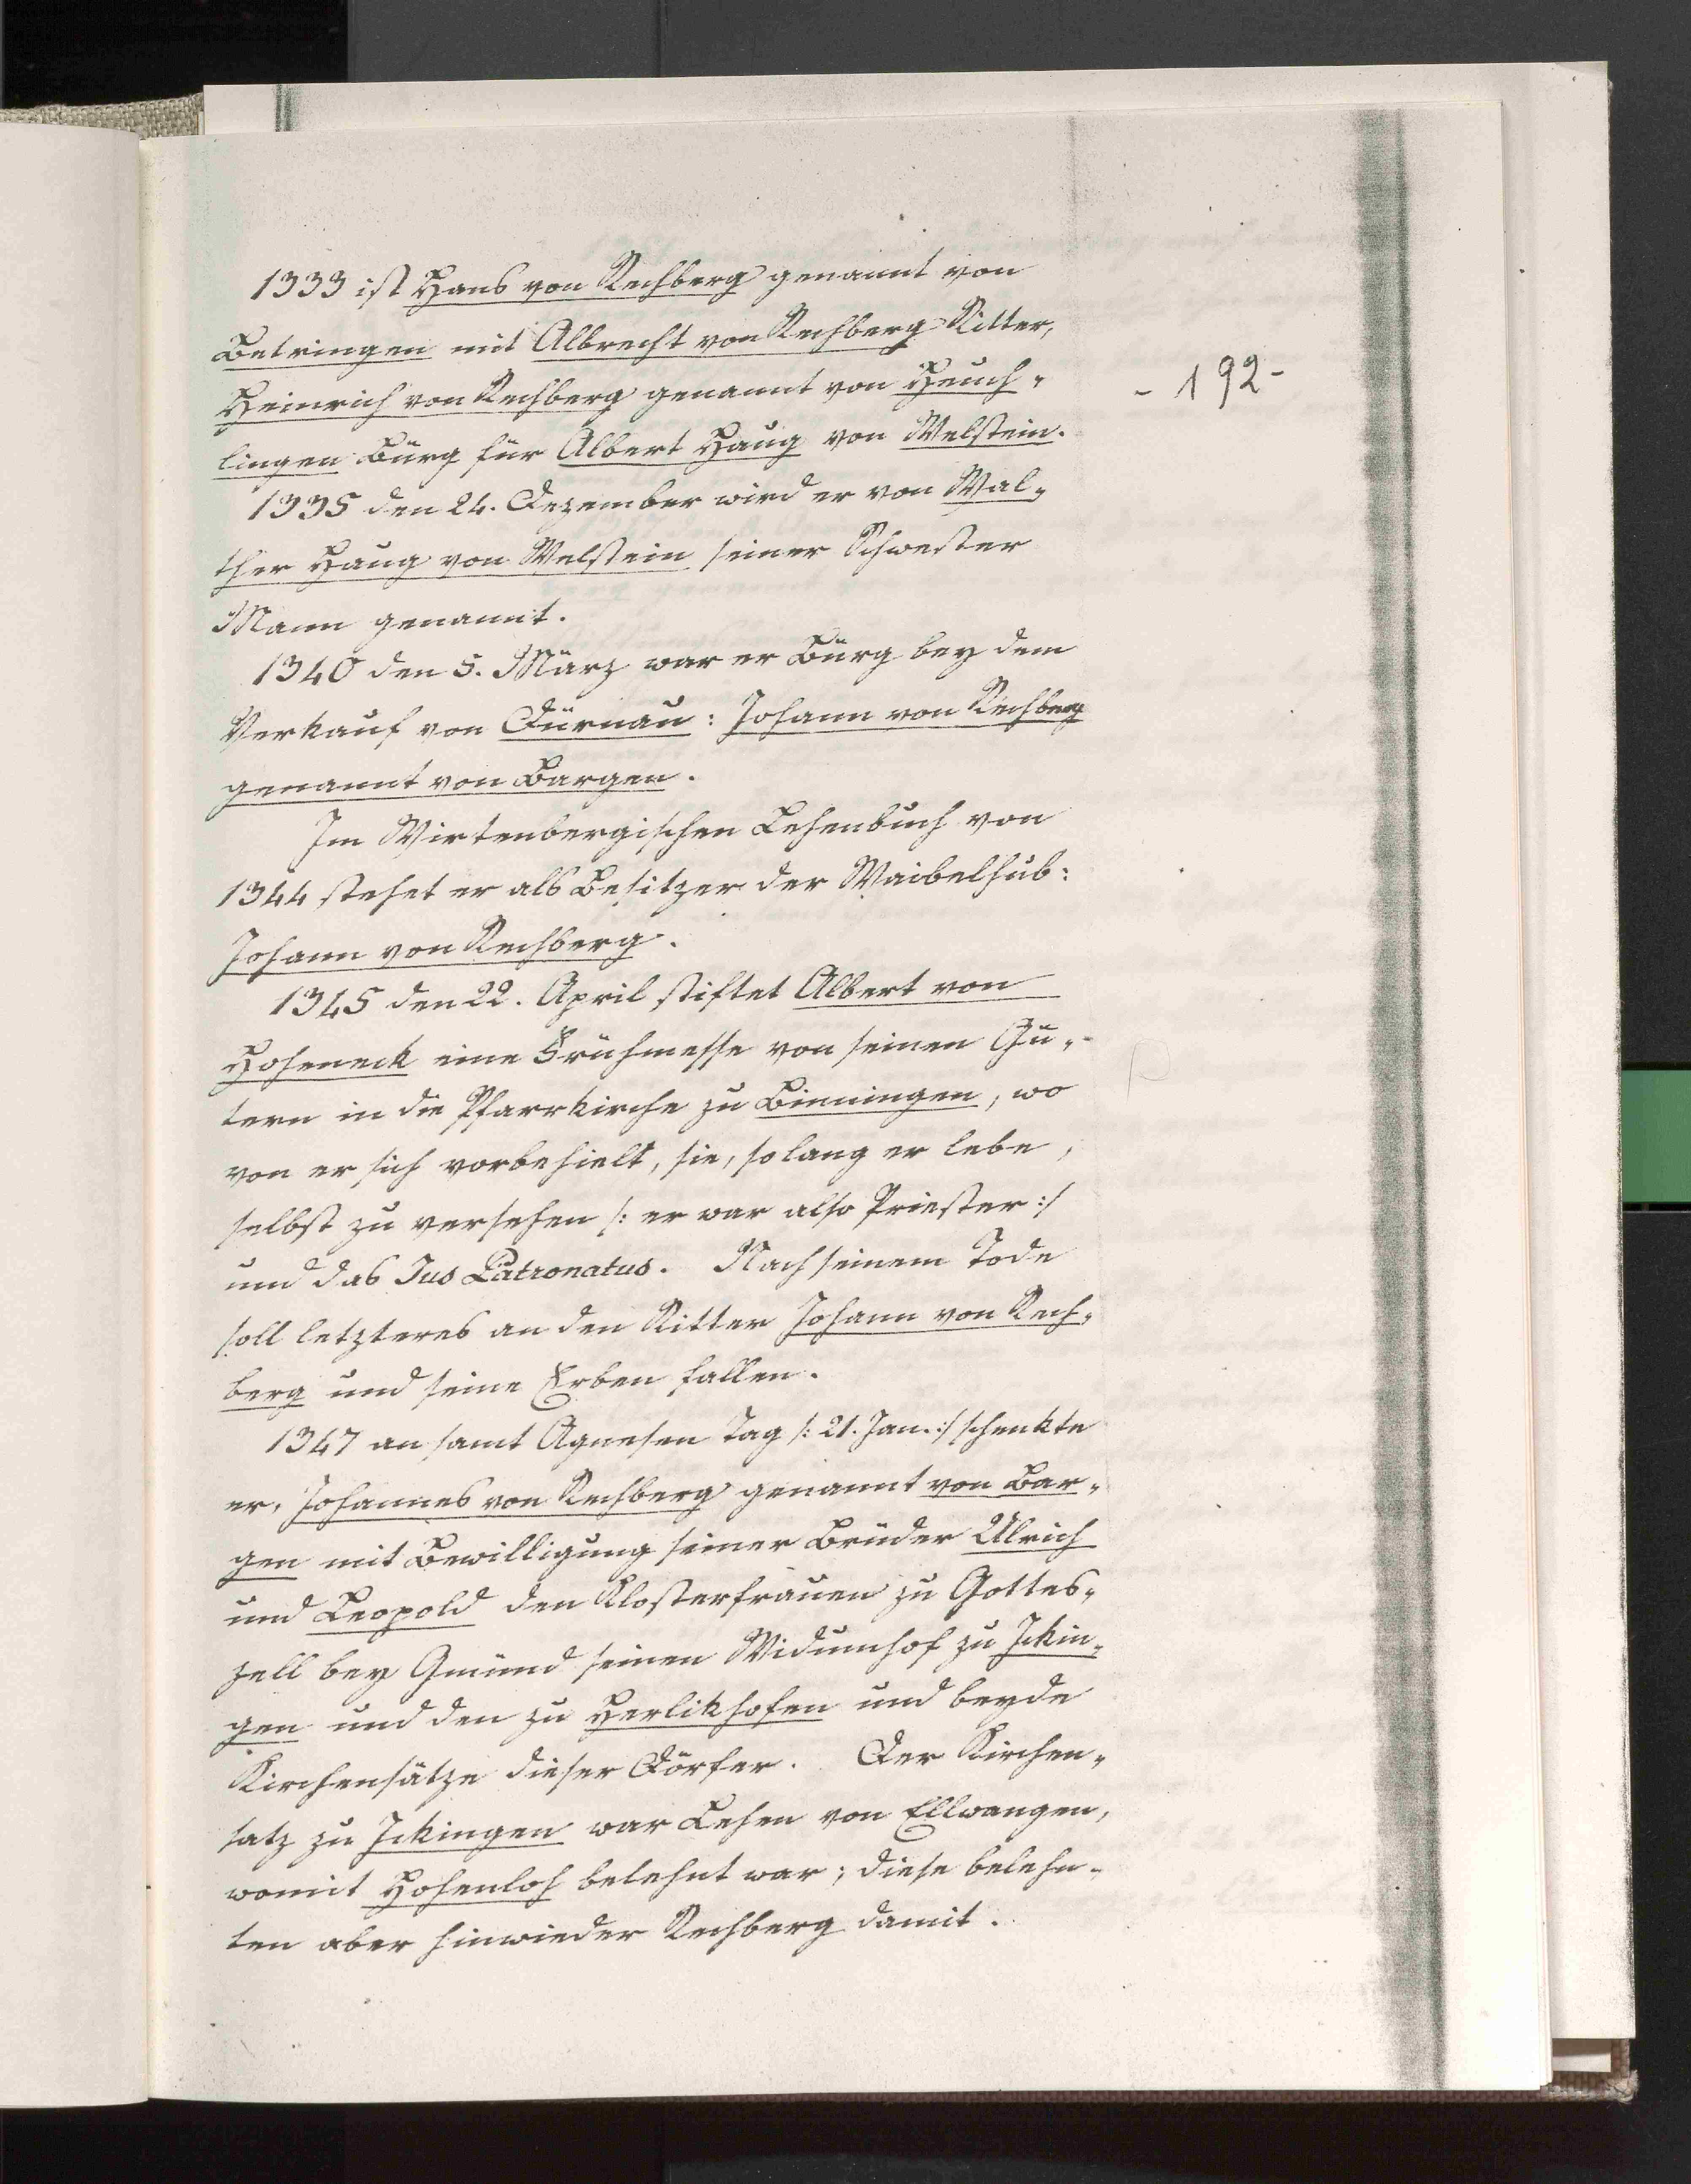 1333 ist Hans von Rechberg genannt von
Betringen mit Albrecht von Rechberg Ritter,
Heinrich von Rechberg genannt von Heuch-
- 192 -
lingen Bürg für Albert Haug von Welstein.
1335 den 24. Dezember wird er von Wal-
ther Haug von Welstein seiner Schwester
Mann genannt.
1340 den 5. März war er Bürg bey dem
Verkauf von Dürnau: Johann von Rechberg
genannt von Bargen.
Im Wirtenbergischen Lehenbuch von
1344 stehet er als Besitzer der Waibelhub:
Johann von Rechberg.
1345 den 22. April stiftet Albert von
Hoheneck eine Frühmesse von seinen Gü-
tern in die Pfarrkirche zu Binningen, wo
von er sich vorbehielt, sie, so lang er lebe,
selbst zu versehen /: er war also Priester :/
und das Jus Patronatus. Nach seinem Tode
soll letzteres an den Ritter Johann von Rech-
berg und seine Erben fallen.
1347 an samt Agnesen Tag /: 21. Jan. :/ schenkte
er, Johannes von Rechberg genannt von Bar-
gen mit Bewilligung seiner Brüder Ulrich
und Leopold den Klosterfrauen zu Gottes-
zell bey Gmünd seinen Widumhof zu Ickin-
gen und den zu Herlikhofen und beyde
Kirchensätze dieser Dörfer. Der Kirchen-
satz zu Ickingen war Lehen von Ellwangen,
womit Hohenloh belehnt war; diese belehn-
ten aber hinwieder Rechberg damit.